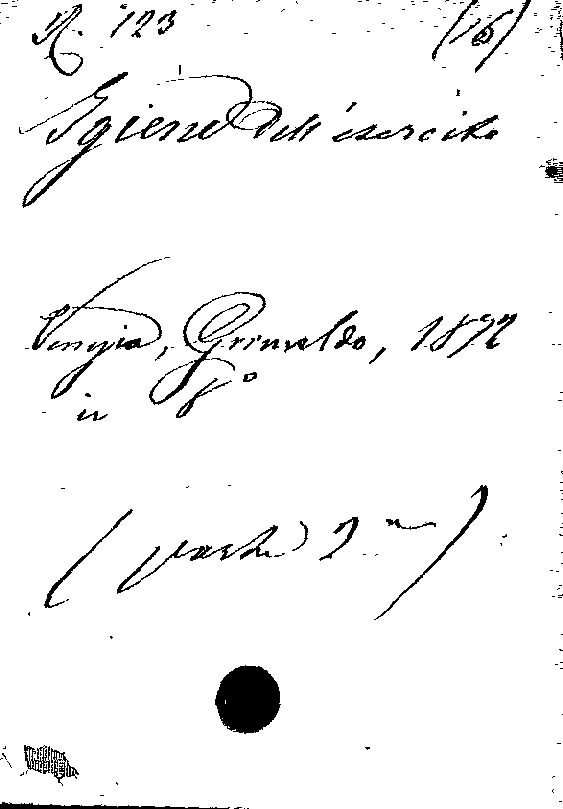 R. 123 (16)
Igiene dell'esercito
Venezia, Grimaldo, 1872
in 8°
(parte 2ª)